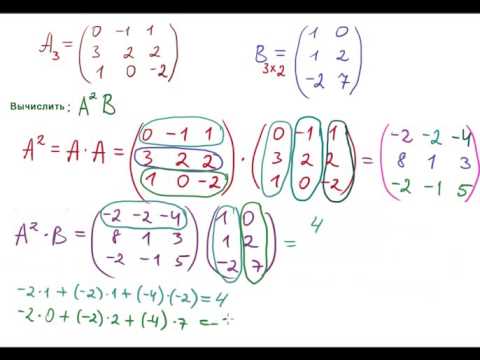 A₃ = (0 -1 1; 3 2 2; 1 0 -2) B₃ₓ₂ = (1 0; 1 2; -2 7)
Вычислить: A²B
A² = A · A = (0 -1 1; 3 2 2; 1 0 -2) · (0 -1 1; 3 2 2; 1 0 -2) = (-2 -2 -4; 8 1 3; -2 -1 5)
A² · B = (-2 -2 -4; 8 1 3; -2 -1 5) (1 0; 1 2; -2 7) = 4
-2·1 + (-2)·1 + (-4)·(-2) = 4
-2·0 + (-2)·2 + (-4)·7 = -